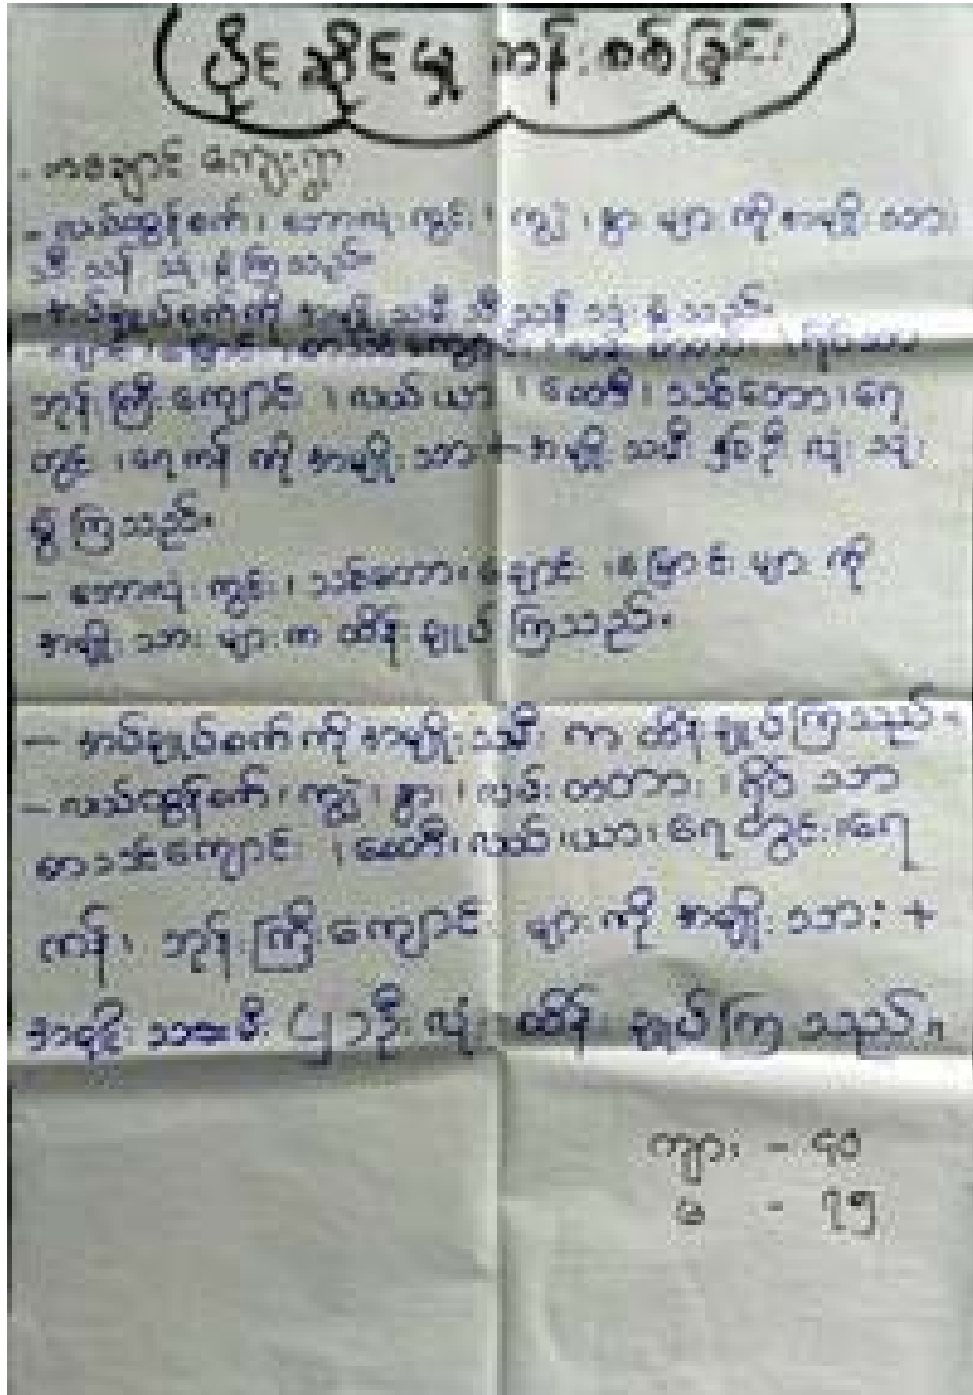 ပိုင်ဆိုင်မှု ဆန်းစစ်ခြင်း
- ကျေးရွာ
- လယ်ထွန်စက်၊ ဘောလုံးကွင်း၊ ကျွဲ၊ နွား များ ကို အမျိုးသား
သီးသန့် သုံးစွဲကြသည်။
- အပ်ချုပ်စက်ကို အမျိုးသမီး သီးသန့် သုံးစွဲသည်။
စာသင်ကျောင်း၊
ဘုန်းကြီးကျောင်း၊ လယ်ယာ၊ စေတီ၊ သစ်တော၊ ရေ
တွင်း၊ ရေကန် ကို အမျိုးသား + အမျိုးသမီး နှစ်ဦးလုံး သုံး
စွဲကြသည်။
- ဘောလုံးကွင်း၊ သစ်တော၊ ချောင်း၊ မြောင်း များ ကို
အမျိုးသား များ က ထိန်းချုပ်ကြသည်။
- အပ်ချုပ်စက် ကို အမျိုးသမီး က ထိန်းချုပ်ကြသည်။
- လယ်ထွန်စက်၊ ကျွဲ၊ နွား၊ လမ်းတံတား၊
စာသင်ကျောင်း၊ စေတီ၊ လယ်ယာ၊ ရေတွင်း၊ ရေ
ကန်၊ ဘုန်းကြီးကျောင်း များ ကို အမျိုးသား +
အမျိုးသမီး ၂ ဦးလုံး ထိန်းချုပ်ကြသည်။
ကျား - ၄၀
မ - ၇၅